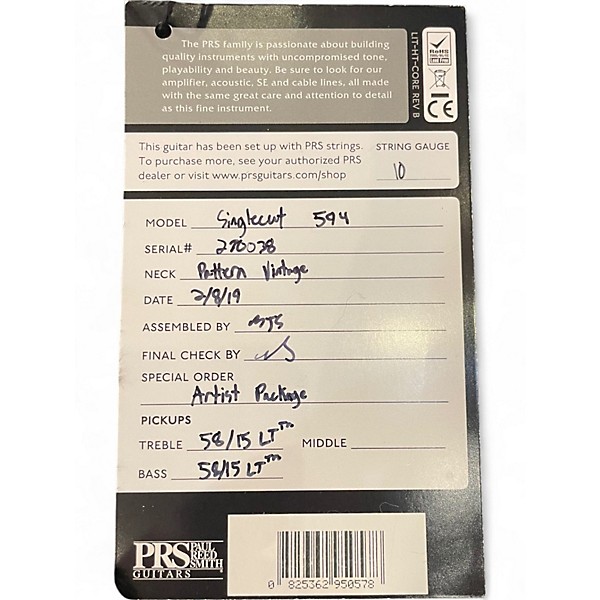 The PRS family is passionate about building
quality instruments with uncompromised tone,
playability and beauty. Be sure to look for our
amplifier, acoustic, SE and cable lines, all made
with the same great care and attention to detail
as this fine instrument.
LIT-HT-CORE REV B
RoHS
CE
This guitar has been set up with PRS strings.
To purchase more, see your authorized PRS
dealer or visit www.prsguitars.com/shop
STRING GAUGE
10
MODEL Singlecut 594
SERIAL# 270038
NECK Pattern Vintage
DATE 2/8/19
ASSEMBLED BY
FINAL CHECK BY
SPECIAL ORDER
Artist Package
PICKUPS
TREBLE 58/15 LT™ MIDDLE
BASS 58/15 LT™
PRS PAUL REED SMITH
GUITARS
0 825362 950578